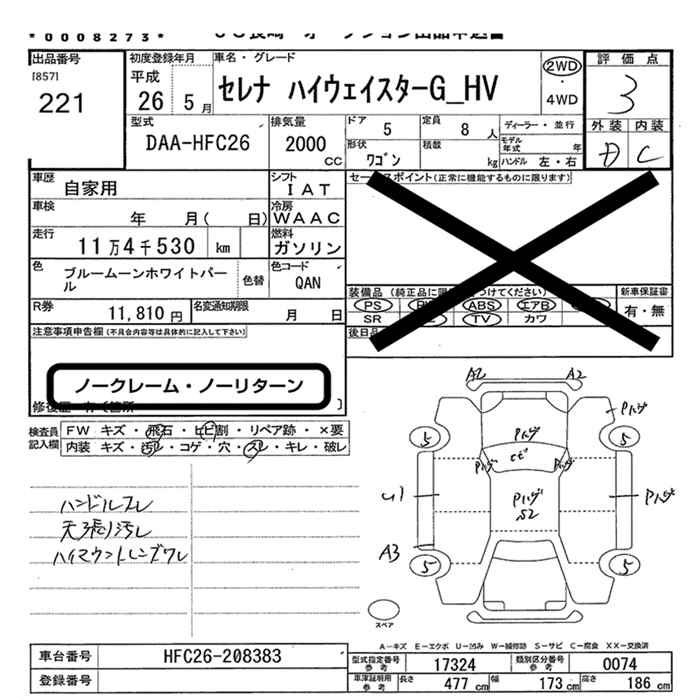 *0008273*
出品番号
[857]
221
初度登録年月
平成
26 5月
車名・グレード
セレナ ハイウェイスターG_HV
2WD
・
4WD
評価点
3
外装 内装
D C
型式
DAA-HFC26
排気量
2000
CC
ドア 5
定員 8 人
ディーラー・並行
形状
ワゴン
積載 kg
モデル年式 年
ハンドル 左・右
車歴 自家用
シフト IAT
車検 年 月( 日)
冷房 WAAC
走行 11万4千530 km
燃料 ガソリン
色 ブルームーンホワイトパール
色替
色コード QAN
R券 11,810円
名変通知期限 月 日
セールスポイント(正常に機能するものに限ります)
装備品
新車保証書
有・無
PS ABS エアB
SR TV カワ
後日品
注意事項申告欄(不具合内容等は具体的に記入して下さい)
ノークレーム・ノーリターン
検査員記入欄
FW キズ・飛石・ヒビ割・リペア跡・×要
内装 キズ・汚レ・コゲ・穴・スレ・キレ・破レ
ハンドルスレ
天張リ汚レ
ハイマウントレンズワレ
A2 A2
Pハゲ
5 5
Pハゲ
Pハゲ ヒビ Pハゲ
U1
Pハゲ
S2
Pハゲ
A3
5 5
スペア
A−キズ E−エクボ U−凹み W−補修跡 S−サビ C−腐食 XX−交換済
車台番号 HFC26-208383
登録番号
型式指定番号 参考 17324
類別区分番号 参考 0074
車庫証明用 参考
長さ 477 cm
幅 173 cm
高さ 186 cm